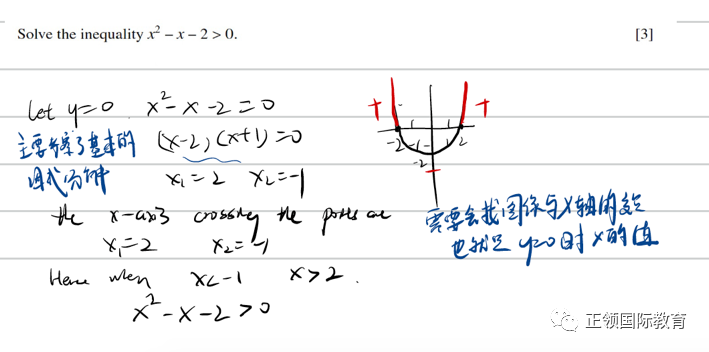 Solve the inequality x² − x − 2 > 0. [3]
Let y=0 x²-x-2=0
主要考察了基本的
因式分解
(x-2)(x+1)=0
x₁=2 x₂=-1
the x-axis crossing the points are
x₁=2 x₂=-1
Hence when x<-1 x>2.
x²-x-2>0
+ +
-2 -1 1 2
-2
-
需要会找图像与X轴的交点
也就是 y=0时 x的值
正领国际教育